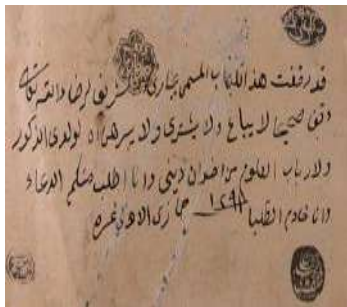 قد وقفت هذا الكتاب المسمى ببخارى شريف لرضاء الله تعالى
وقفا صحيحا لا يباع ولا يشترى ولا يرهن لولدى الذكور
ولارباب العلوم من اخوان دينى وانا اطلب منكم الدعاء
وانا خادم الطلبا جمادى الاولى غره